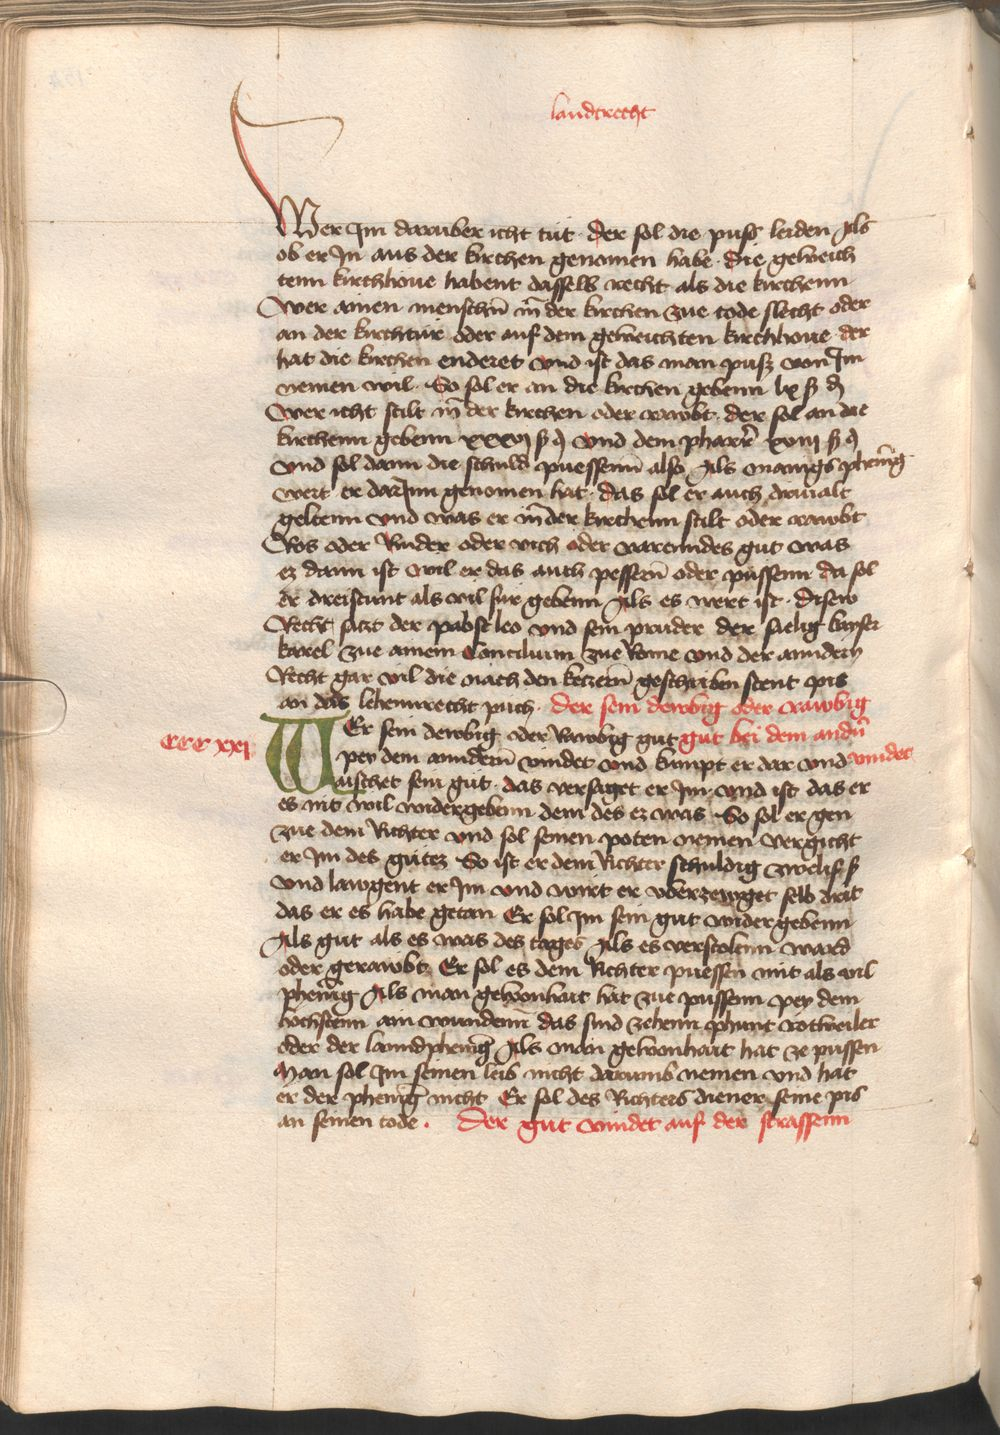 landtrecht
Wer Im daruber icht tut · der sol die puss leiden Als
ob er In aus der kirchen genomen habe · die geweich
tenn kirchhoue habent dasselb recht als die kirchenn
Wer ainen menschn̄ in̄ der kirchen zue tode slecht oder
an der kirchtür oder auf dem geweichten kirchhoue · der
hat die kirchen enderet vnd ist das man pusz von Im
nemen wil · So sol er an die kirchen gebenn lx ß ₰
Wer icht stilt in̄ der kirchen oder rawbt · der sol an die
kirchenn gebenn xxxvj ß ₰ vnd dem pharrer̄ xviij ß ₰
vnd sol dann die schuld puessenn also Als manigs phenīg
wert er dar Inn genomen hat · das sol er auch driualt
geltenn vnd was er in̄ der kirchenn stilt oder rawbt
Ros oder Rinder oder vich oder varenndes gut was
ez dann ist wil er das auch pessern̄ oder püssenn da sol
er dreistunt als vil für gebenn Als es wert ist · disew
Recht satzt der pabst leo vnd sein pruder der saelig kayser
karel zue ainem Concilium zue Rome vnd der anndern
Recht gar vil die nach den ketzern̄ geschriben stent pis
an das lehennrecht puch · der sein dewbig oder rawbig
CCC xxj
WEr sein dewbig oder Rawbig gut gut bei dem andn̄
pey dem anndern̄ vindet vnd kumpt er dar vnd vindet
aischet sein gut · das versaget er Im · vnd ist das er
es nit wil widergebenn dem des ez was So sol er gen
zue dem Richter vnd sol seinen poten nemen vergicht
er Im des gutez So ist er dem Richter schuldig zwelif ß
vnd lawgent er Im vnd wirt er vberzewget selb drit
das er es habe getan Er sol Im sein gut widergebenn
Als gut als es was des tages Als es verstolenn ward
oder gerawbt Er sol es dem Richter puessen mit als vil
phenīg Als man gewonhait hat zue püssenn pey dem
hochstenn ain wundenn das sind zehenn phunt rotweiler
oder der lanndphenīg Als man gewonhait hat ze püssen
Man sol Im seinen leib nicht darumb nemen vnd hat
er der phenīg nicht Er sol des Richters diener seine pis
an seinen tode · Der gut vindet auf der strassenn